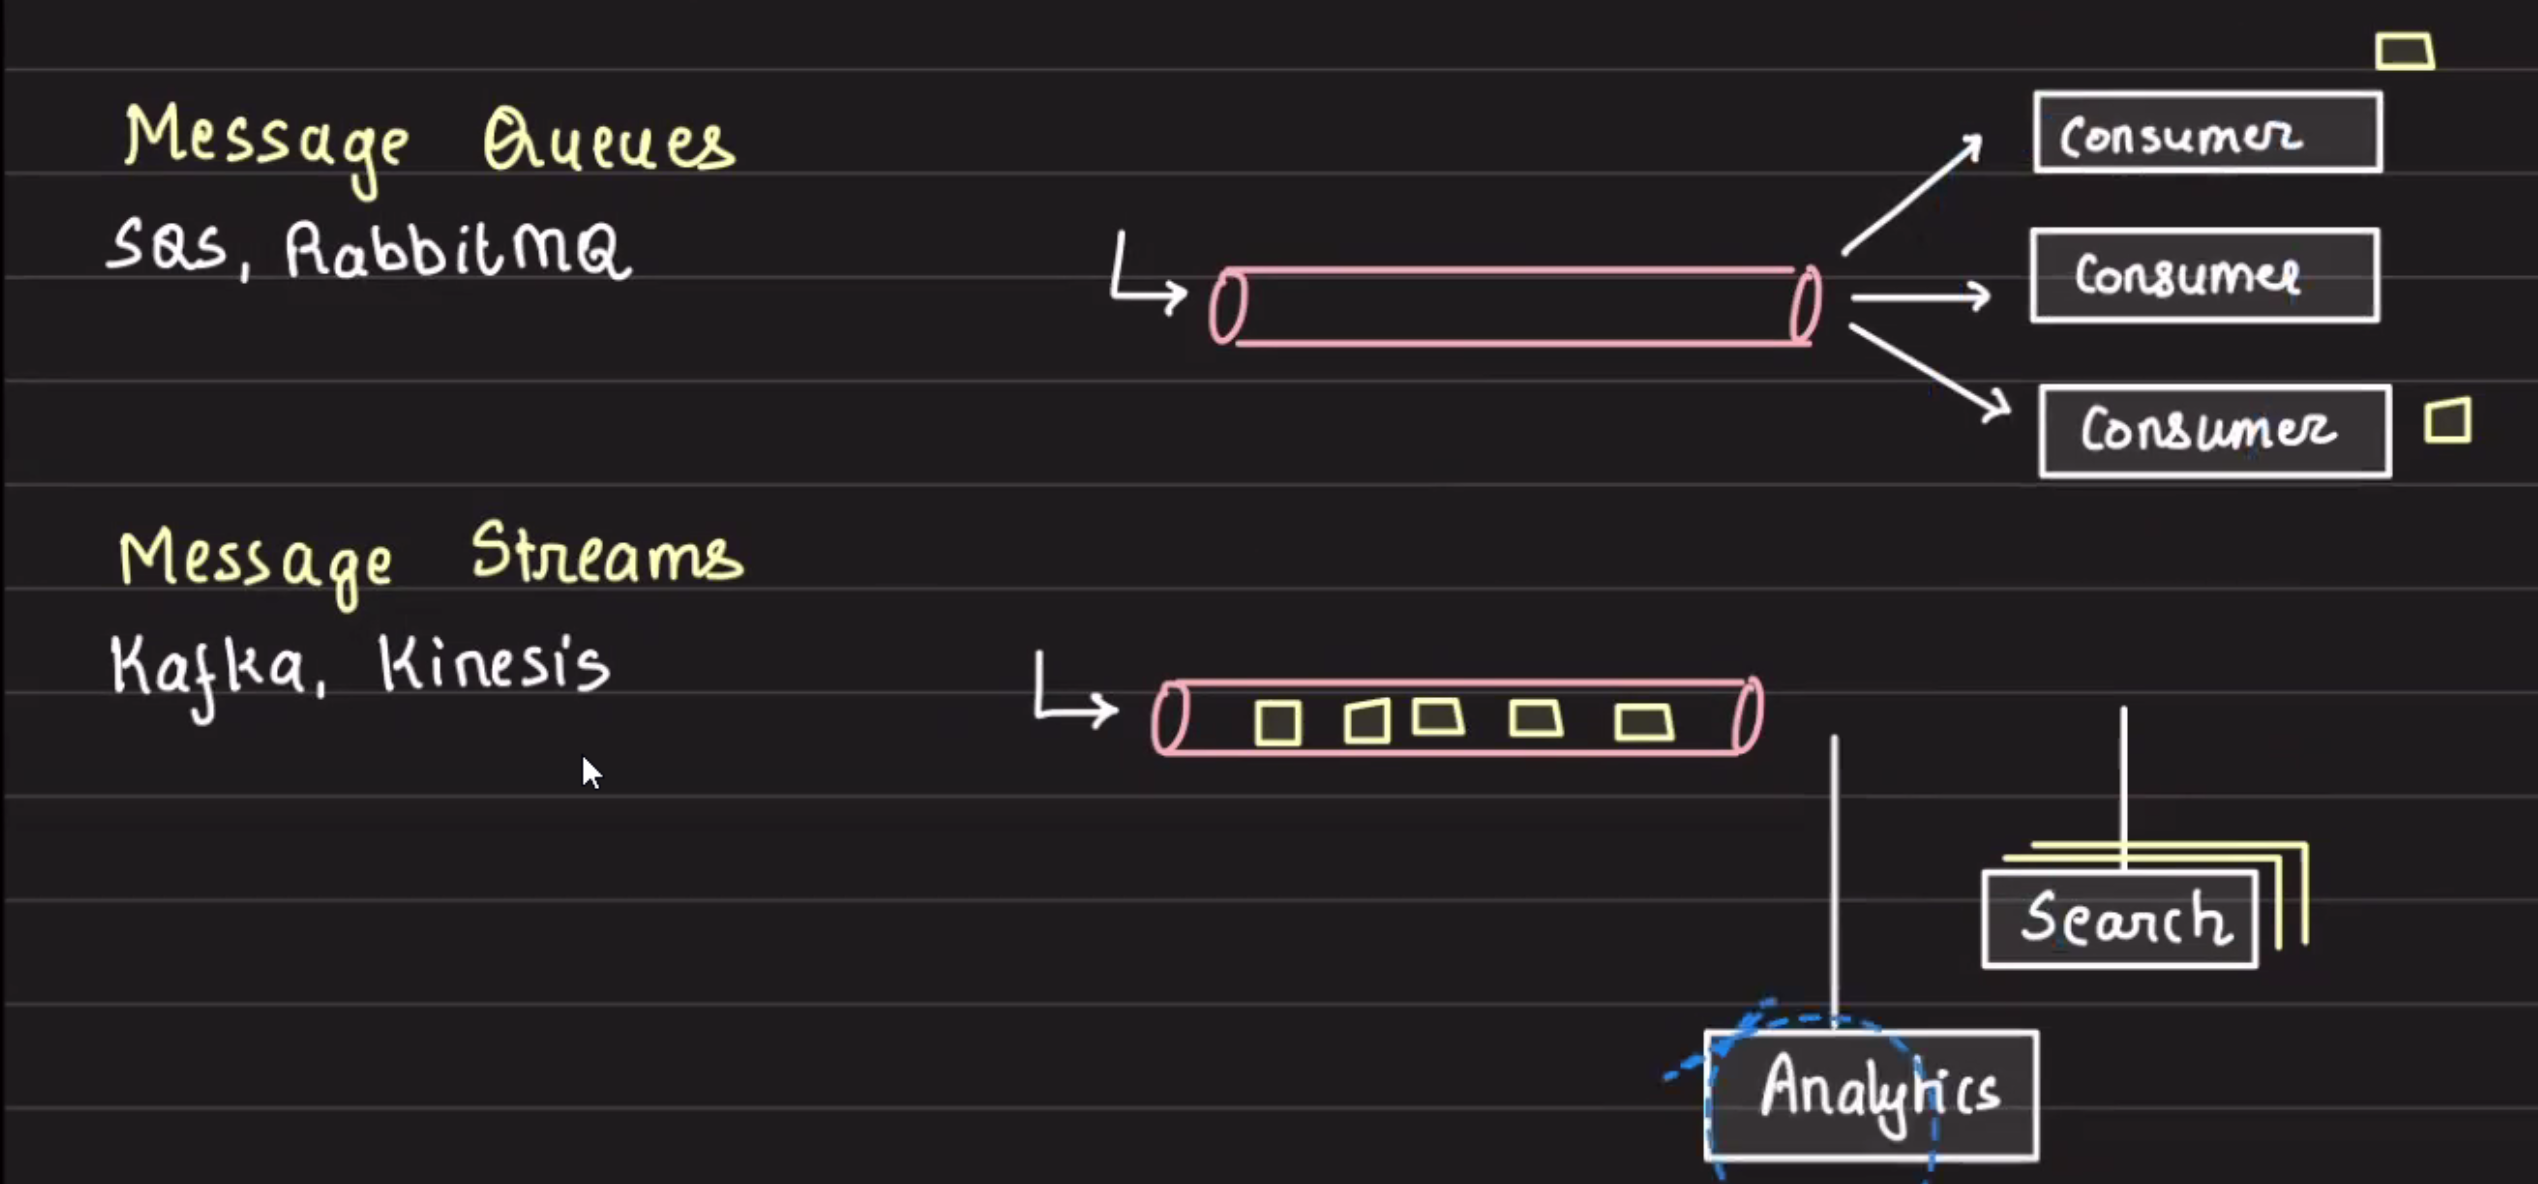 Message Queues
SQS, RabbitMQ
Consumer
Consumer
Consumer
Message Streams
Kafka, Kinesis
Search
Analytics